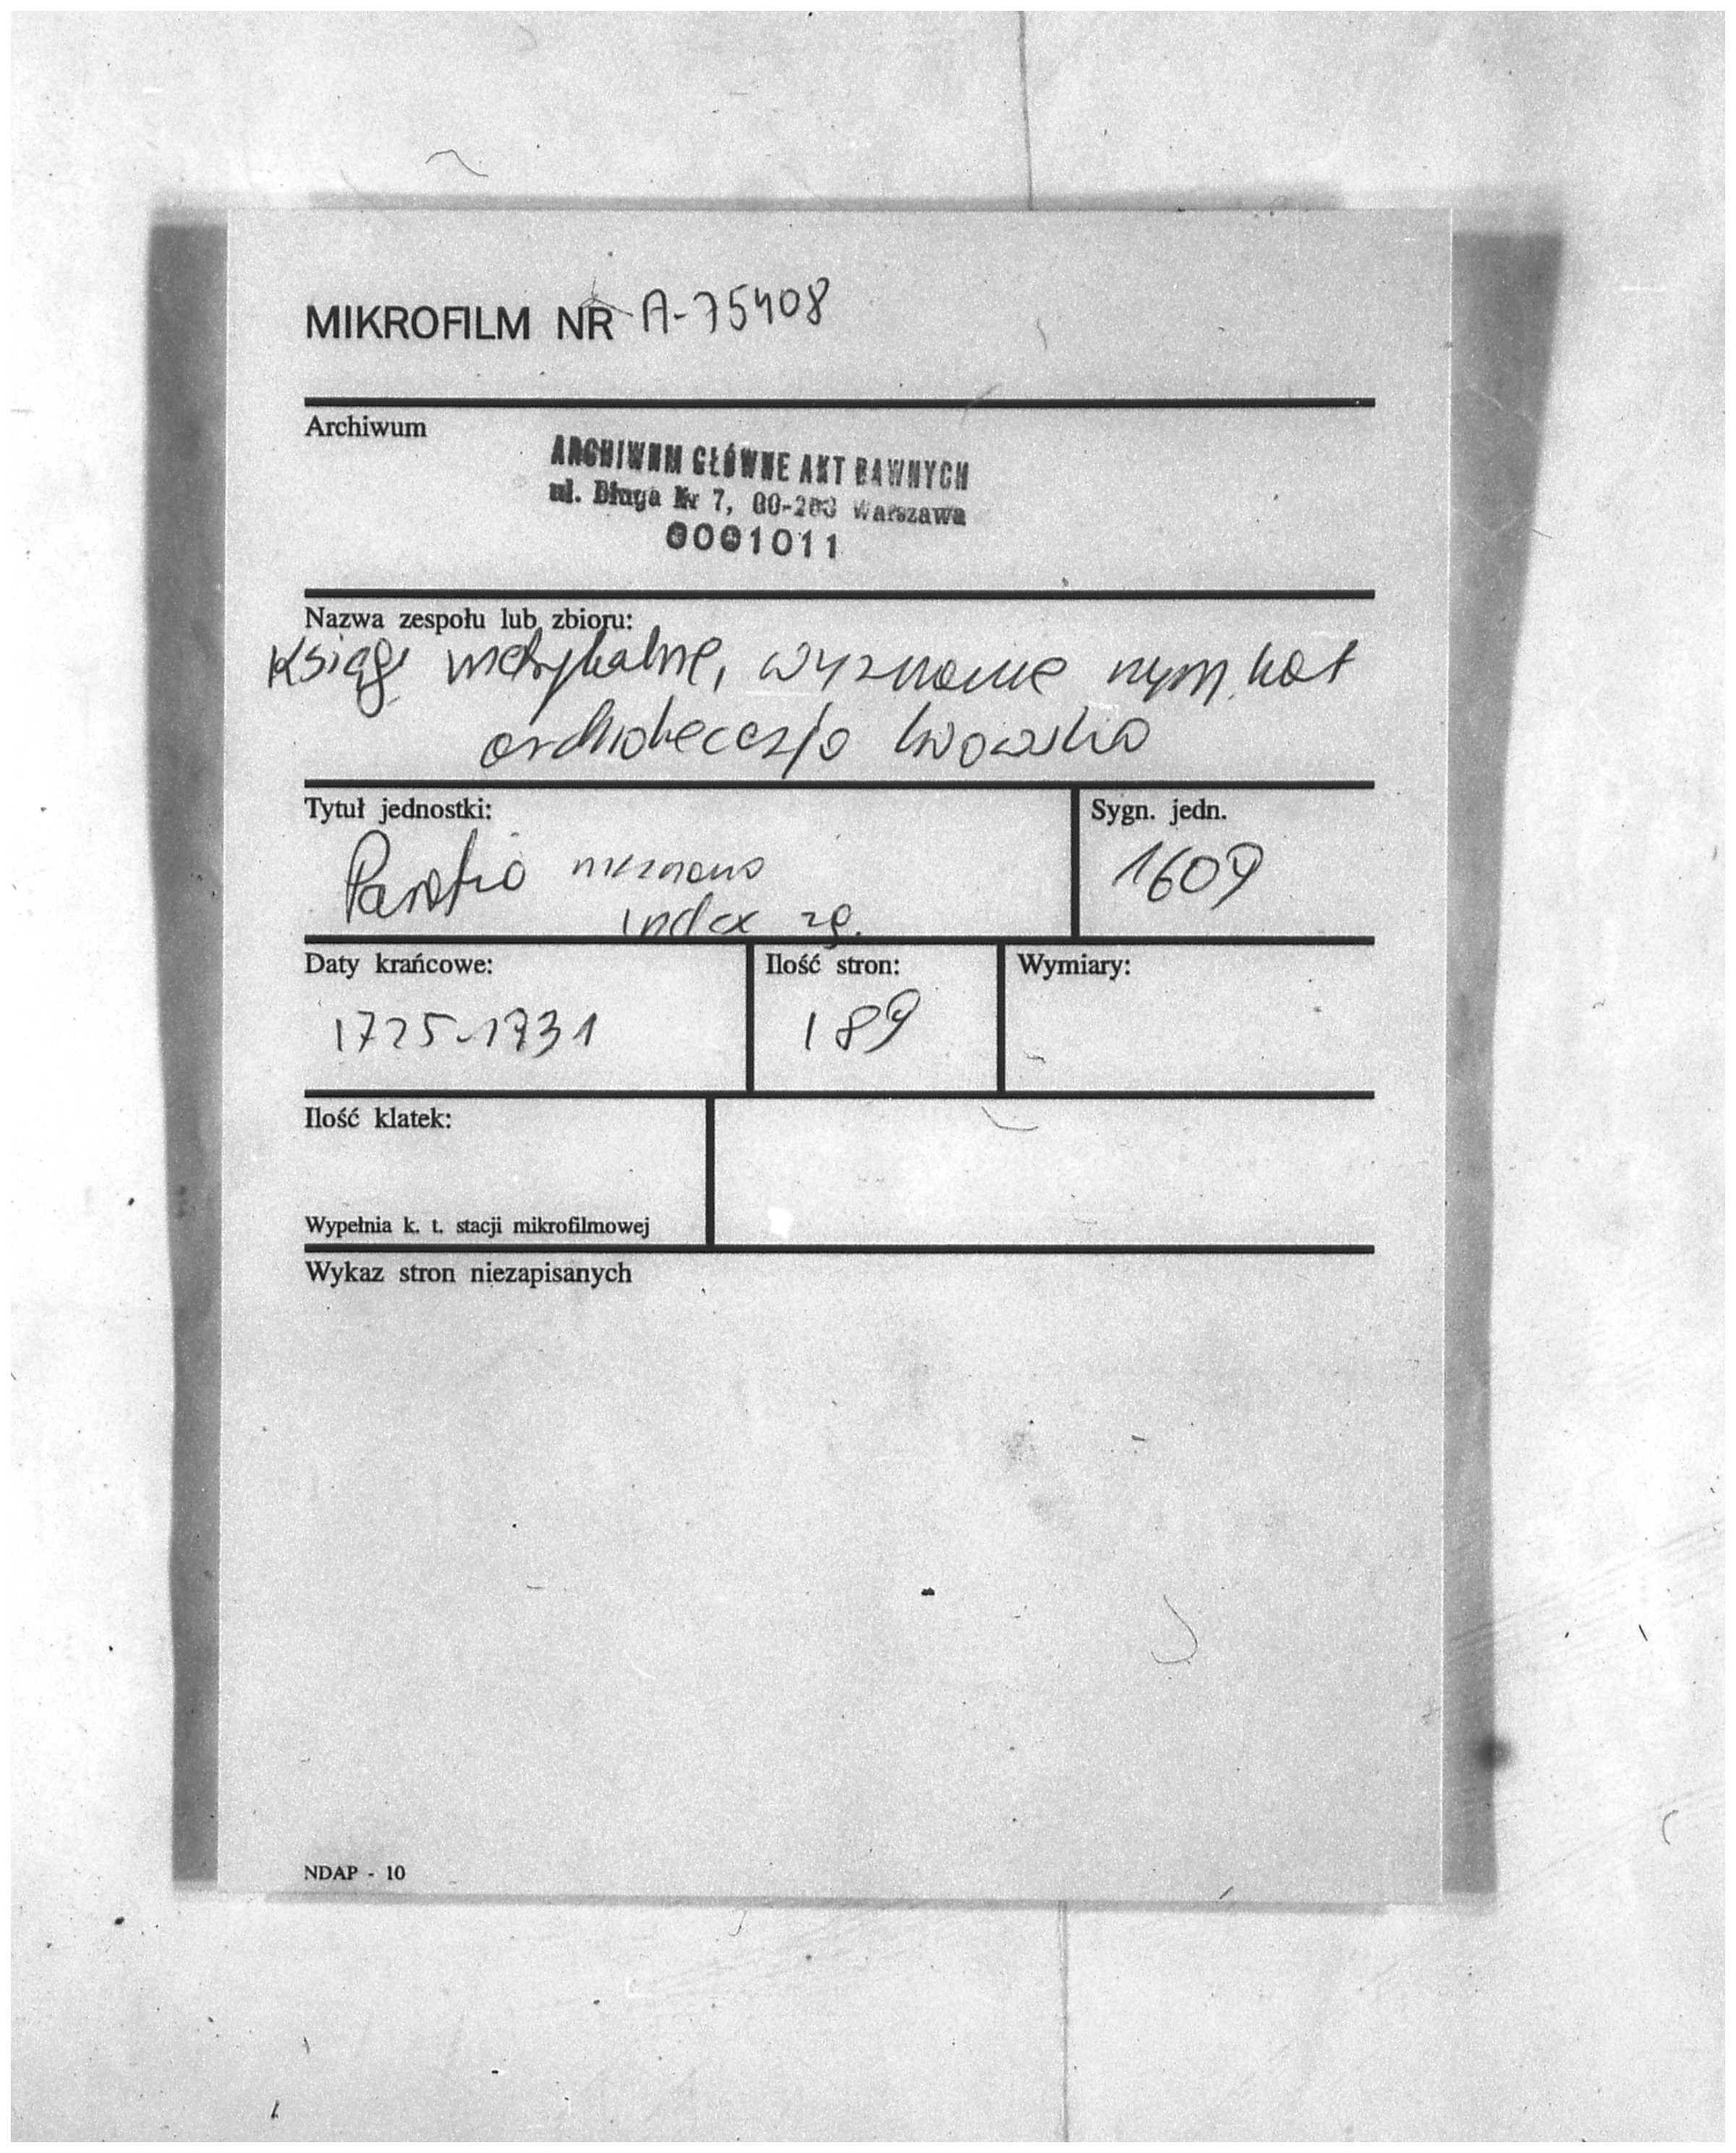 MIKROFILM NR A-75408
Archiwum
ARCHIWUM GŁÓWNE AKT DAWNYCH
ul. Długa Nr 7, 00-263 Warszawa
0001011
Nazwa zespołu lub zbioru:
Księgi metrykalne, wyznanie rzym. kat
archidiecezja lwowska
Tytuł jednostki:
Parafia nieznana
index zg.
Sygn. jedn.
1609
Daty krańcowe:
1725-1731
Ilość stron:
189
Wymiary:
Ilość klatek:
Wypełnia k. t. stacji mikrofilmowej
Wykaz stron niezapisanych
NDAP - 10